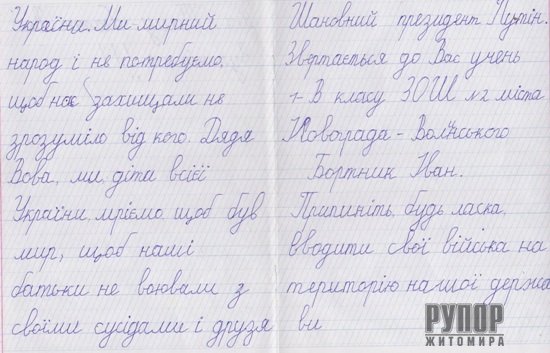 Шановний президент Путін.
Звертається до Вас учень
1-В класу ЗОШ №2 міста
Новограда-Волинського
Бортник Іван.
Припиніть, будь ласка,
вводити свої війська на
територію нашої держа
ви
України. Ми мирний
народ і не потребуємо,
щоб нас захищали не
зрозуміло від кого. Дядя
Вова, ми, діти всієї
України, мріємо, щоб був
мир, щоб наші
батьки не воювали з
своїми сусідами і друзя
РУПОР
ЖИТОМИРА